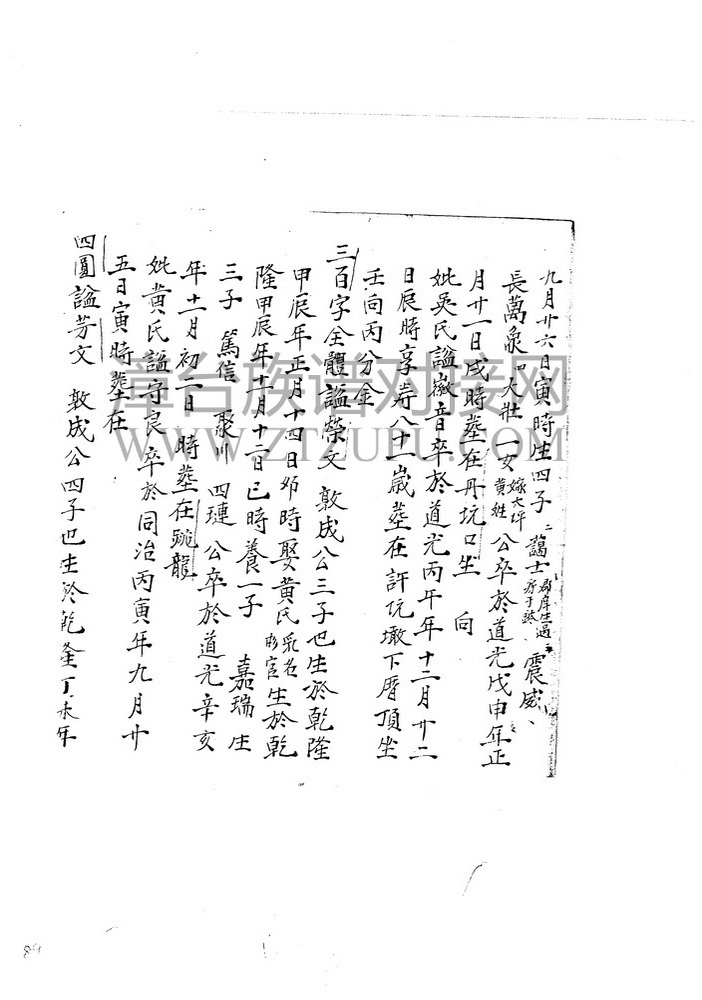 九月廿六日寅時生四子 二藹士 郡庠生過 房于 三震威、
長萬泉四大壯一女 嫁大坪黃姓 公卒於道光戊申年正
月廿一日戌時塟在丹坑口坐 向
妣吳氏謚徽音卒於道光丙午年十二月廿二
日辰時享壽八十一歲塟在許坑墩下厝頂坐
壬向丙分金
三百字全體謚榮文 敦成公三子也生於乾隆
甲辰年正月十四日卯時娶黃氏乳名 官生於乾
隆甲辰年十一月十二日巳時養一子 嘉瑞生
三子 篤信 聚川 四璉 公卒於道光辛亥
年十一月初二日 時塟在 龍
妣黃氏謚守良卒於同治丙寅年九月廿
五日寅時塟在
四圓謚芳文 敦成公四子也生於乾隆丁未年
章台族谱对接网
WWW.ZTZUPU.COM
84